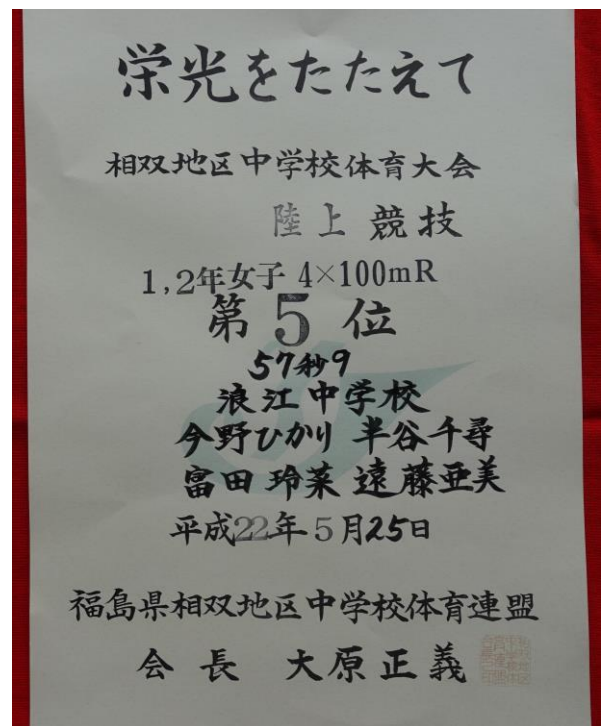 栄光をたたえて
相双地区中学校体育大会
陸上競技
1,2年女子 4×100mR
第5位
57秒9
浪江中学校
今野ひかり 半谷千尋
富田玲菜 遠藤亜美
平成22年5月25日
福島県相双地区中学校体育連盟
会長 大原正義